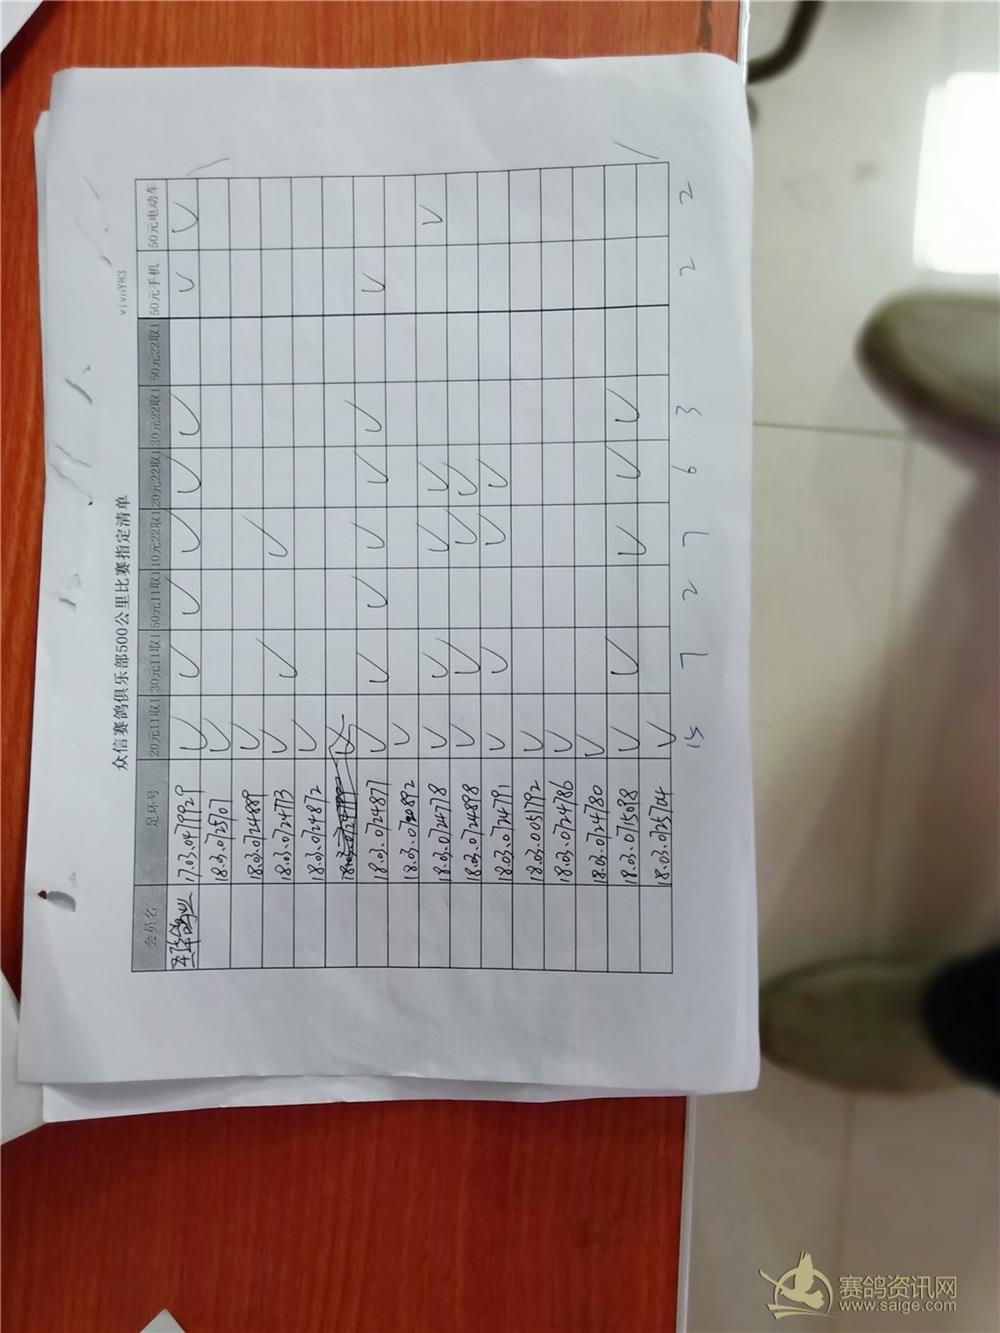 众信赛鸽俱乐部500公里比赛指定清单
vivoY83
会员名 足环号 20元11取1 30元11取1 50元11取1 10元22取1 20元22取1 30元22取1 50元22取1 50元手机 50元电动车
鸽业 17.03.0479929 ✓ ✓ ✓ ✓ ✓ ✓ ✓ ✓
18.03.0125707 ✓
18.03.0124889 ✓
18.03.0124773 ✓ ✓ ✓
18.03.0124872 ✓
18.03.0124877 ✓ ✓ ✓ ✓ ✓ ✓ ✓
✓
18.03.0124778 ✓ ✓ ✓ ✓ ✓
18.03.0124898 ✓ ✓ ✓ ✓
18.03.0124791 ✓ ✓ ✓ ✓
18.03.0051792 ✓
18.03.0124786 ✓
18.03.0124780 ✓
18.03.0175098 ✓ ✓ ✓ ✓ ✓
18.03.0125704 ✓
15 7 2 7 6 3 2 2
赛鸽资讯网
www.saige.com